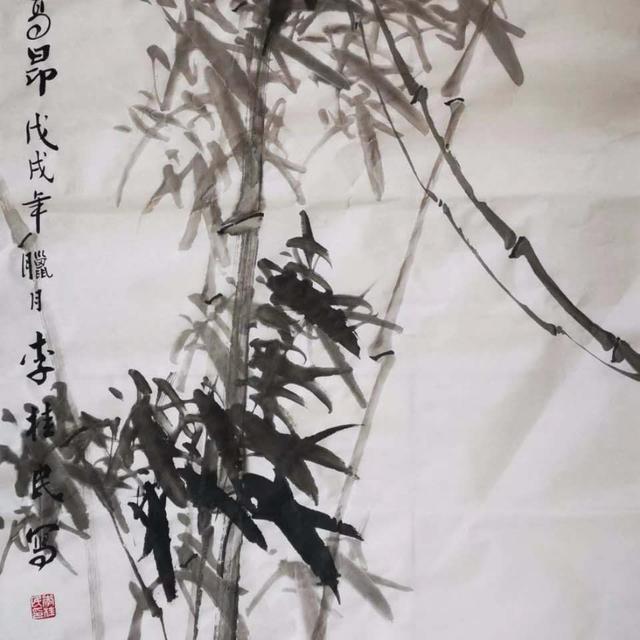 高昂戊戌年臘月李桂民寫